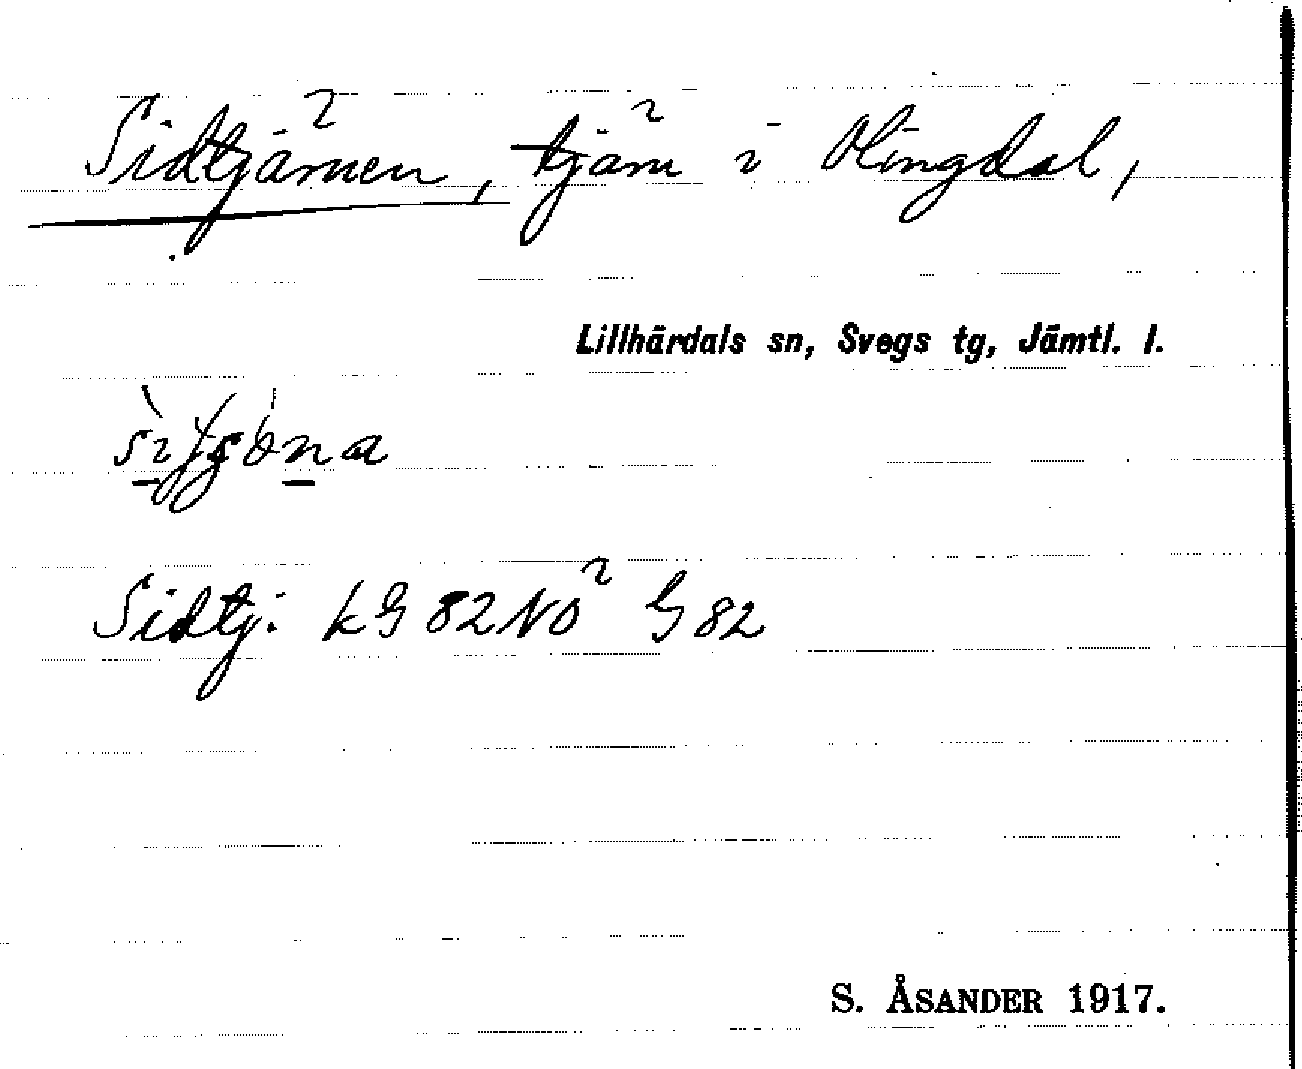 Sidtjärnen, tjärn i Olingdal,
Lillhärdals sn, Svegs tg, Jämtl. l.
Sidtj. LG 82 NO² G 82
S. ÅSANDER 1917.